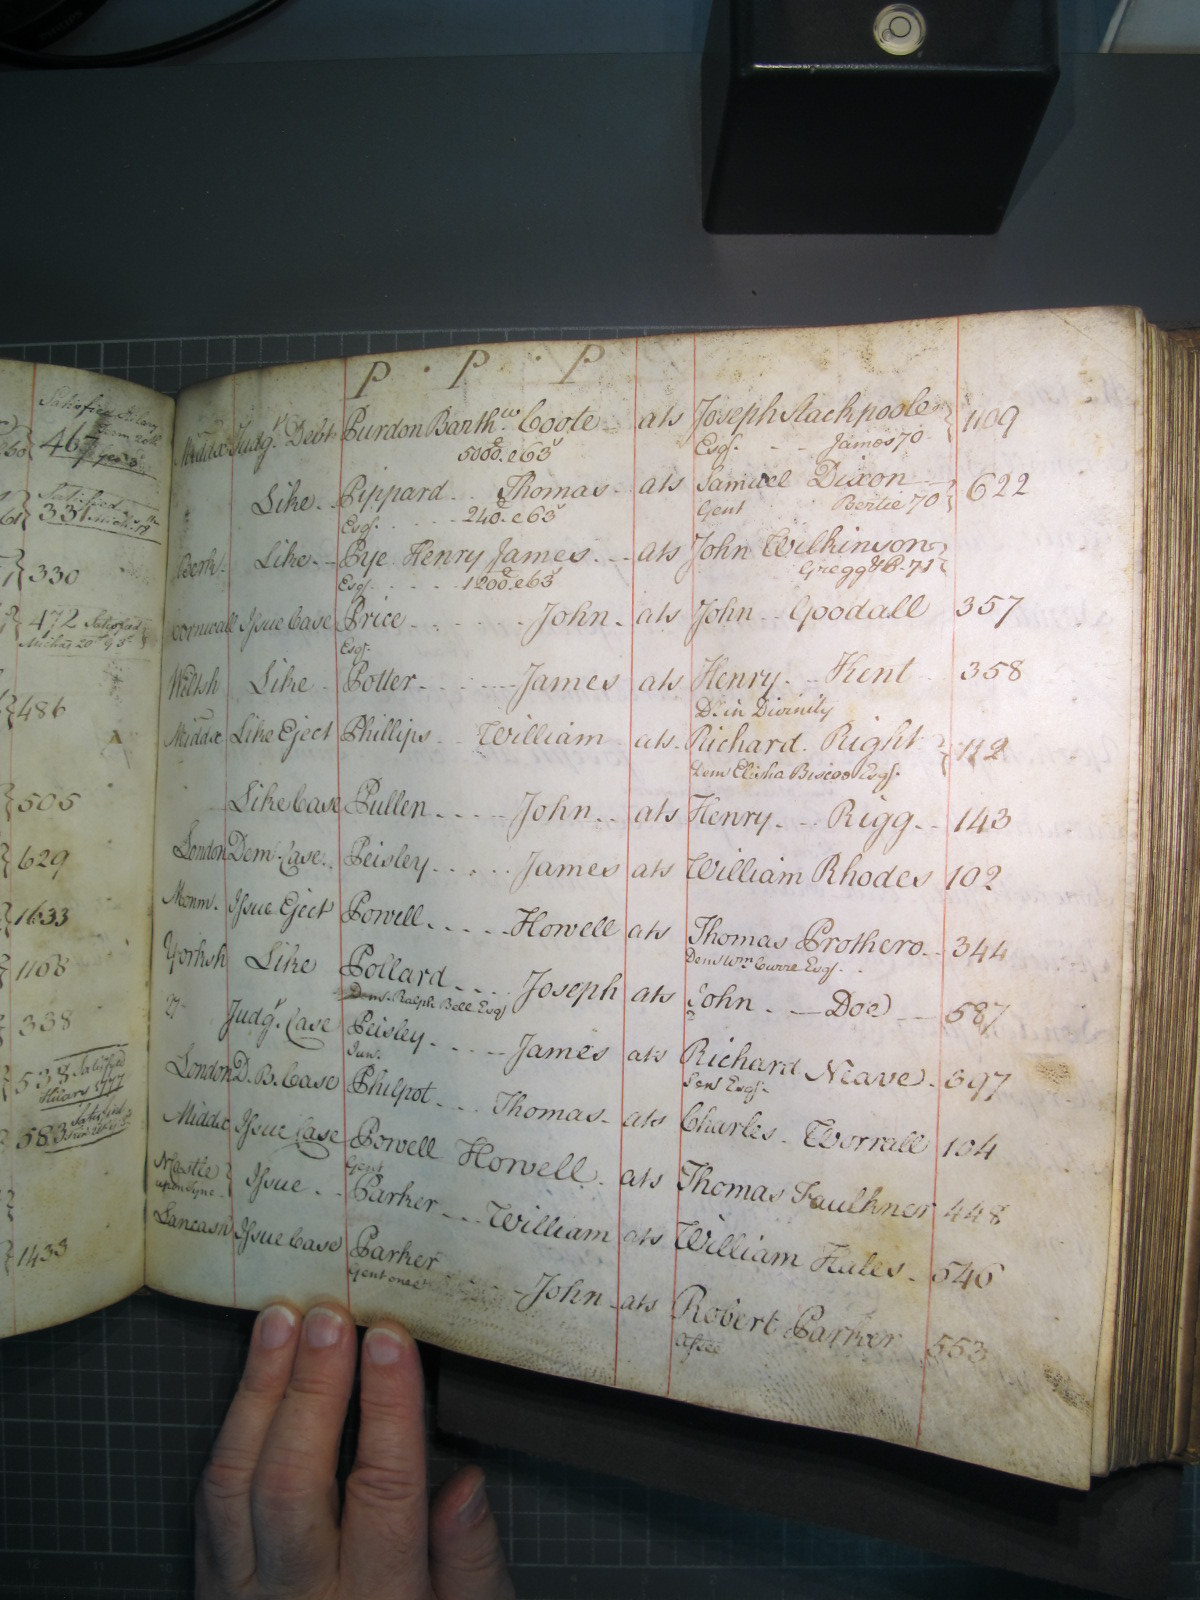 Satisfied Hilary
467
Satisfied
331
330
472 Satisfied
486
505
629
1633
1108
338
538 Satisfied
Hilary
583 Satisfied
1433
P · P · P
Middx Judgt. Debt Purdon Barthw. Coote ats Joseph Stackpoole 1109
5000. e 63s Esqr. James 70
Like Pippard Thomas ats Samuel Dixon 622
Esqr. 240. e 63s Gent Bertie 70
Berk. Like Pye Henry James ats John Wilkinson
Esqr. 1200. e 63s Gregg 71
Cornwall Issue Case Price John ats John Goodall 357
Esqr.
Wiltsh Like Potter James ats Henry Kent 358
Dr. in Divinity
Middx Like Eject Phillips William ats Richard Right 112
Dem Elisha Biscoe Esqr.
Like Case Pullen John ats Henry Rigg 143
London Dem. Case Peisley James ats William Rhodes 102
Monm. Issue Eject Powell Howell ats Thomas Prothero 344
Dem Wm. Curre Esqr.
Yorksh Like Pollard Joseph ats John Doe 587
Dem. Ralph Bell Esqr
Judgt. Case Peisley James ats Richard Neave 397
Junr. Senr Esqr.
London D. B. Case Philpot Thomas ats Charles Worrall 104
Middx Issue Case Powell Howell ats Thomas Faulkner 448
Gent
NCastle upon Tyne Issue Parker William ats William Hales 546
Lancash Issue Case Parker John ats Robert Parker 553
Gent one &c Assee